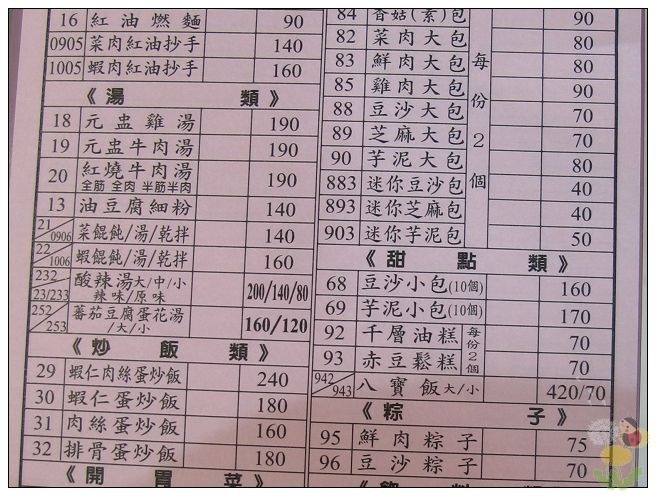 16 紅油燃麵 90
0905 菜肉紅油抄手 140
1005 蝦肉紅油抄手 160
《湯 類》
18 元盅雞湯 190
19 元盅牛肉湯 190
20 紅燒牛肉湯 190
全筋 全肉 半筋半肉
13 油豆腐細粉 140
21/0906 菜餛飩/湯/乾拌 140
22/1006 蝦餛飩/湯/乾拌 160
232 23/233 酸辣湯大/中/小 200/140/80
辣味/原味
252/253 蕃茄豆腐蛋花湯 160/120
/大/小
《炒 飯 類》
29 蝦仁肉絲蛋炒飯 240
30 蝦仁蛋炒飯 180
31 肉絲蛋炒飯 160
32 排骨蛋炒飯 180
《開 胃 菜》
84 香菇(素)包 90
82 菜肉大包 80
83 鮮肉大包 80
85 雞肉大包 90
88 豆沙大包 70
89 芝麻大包 70
90 芋泥大包 80
883 迷你豆沙包 40
893 迷你芝麻包 40
903 迷你芋泥包 50
每份2個
《甜 點 類》
68 豆沙小包(10個) 160
69 芋泥小包(10個) 170
92 千層油糕 70
93 赤豆鬆糕 70
每份2個
942/943 八寶飯大/小 420/70
《粽 子》
95 鮮肉粽子 75
96 豆沙粽子 70
《飲 料 類》